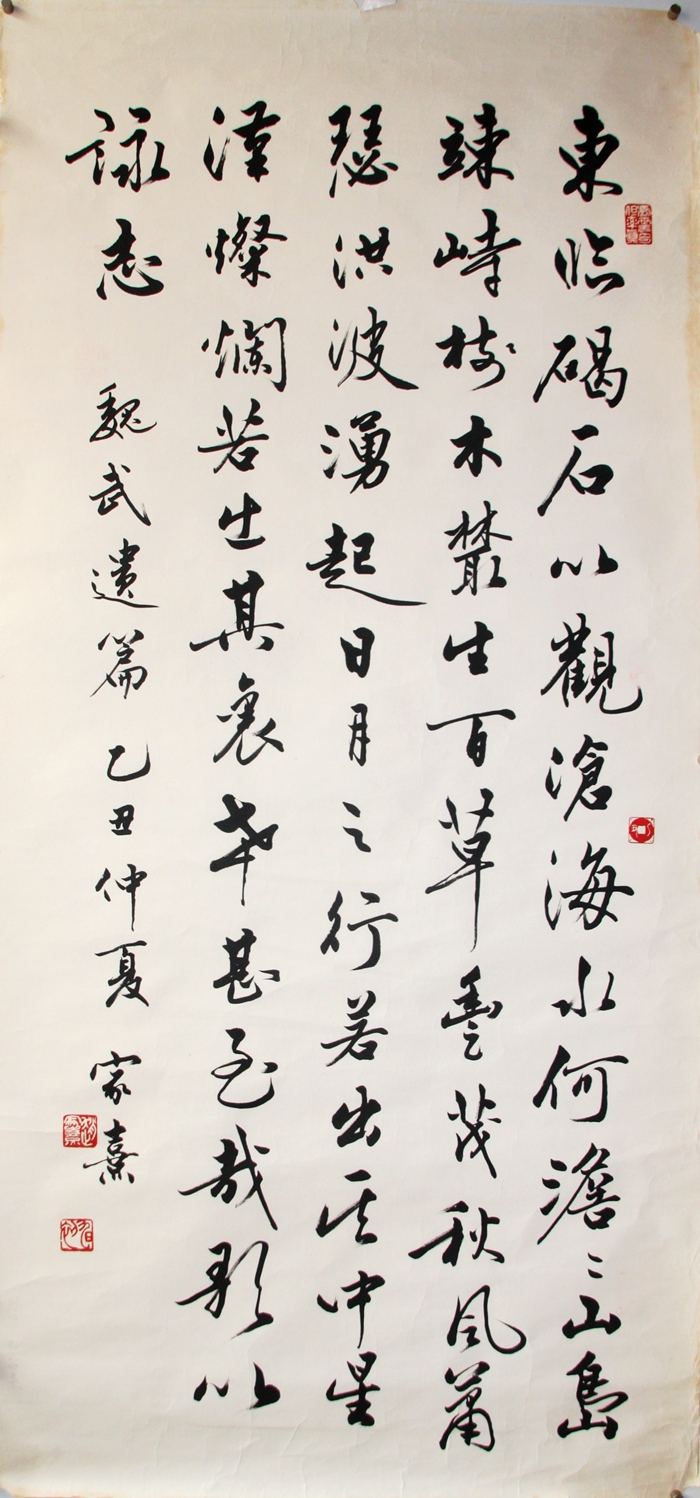 東臨碣石以觀滄海水何澹〻山島
竦峙樹木叢生百草豐茂秋風蕭
瑟洪波湧起日月之行若出其中星
漢燦爛若出其裏幸甚至哉歌以
詠志 魏武遺篇 乙丑仲夏 家熹